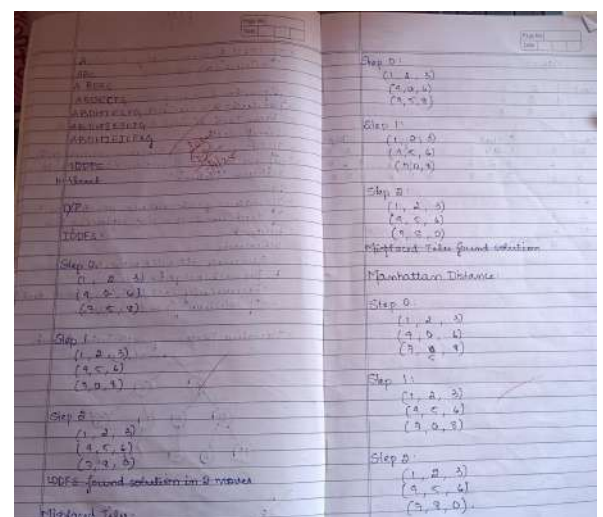 Page No.
Date
A
ABC
IDDFS
O/P:-
IDDFS:-
Step 0:
(1, 2, 3)
(4, 0, 6)
(7, 5, 8)
Step 1
(1, 2, 3)
(4, 5, 6)
(7, 0, 8)
Step 2
(1, 2, 3)
(4, 5, 6)
(7, 8, 0)
IDDFS found solution in 2 moves
Misplaced Tiles:-
Page No.
Date
Step 0:
(1, 2, 3)
(4, 0, 6)
(7, 5, 8)
Step 1:
(1, 2, 3)
(4, 5, 6)
(7, 0, 8)
Step 2:
(1, 2, 3)
(4, 5, 6)
(7, 8, 0)
Misplaced Tiles found solution
Manhattan Distance
Step 0:
(1, 2, 3)
(4, 0, 6)
(7, 5, 8)
Step 1:
(1, 2, 3)
(4, 5, 6)
(7, 0, 8)
Step 2:
(1, 2, 3)
(4, 5, 6)
(7, 8, 0).